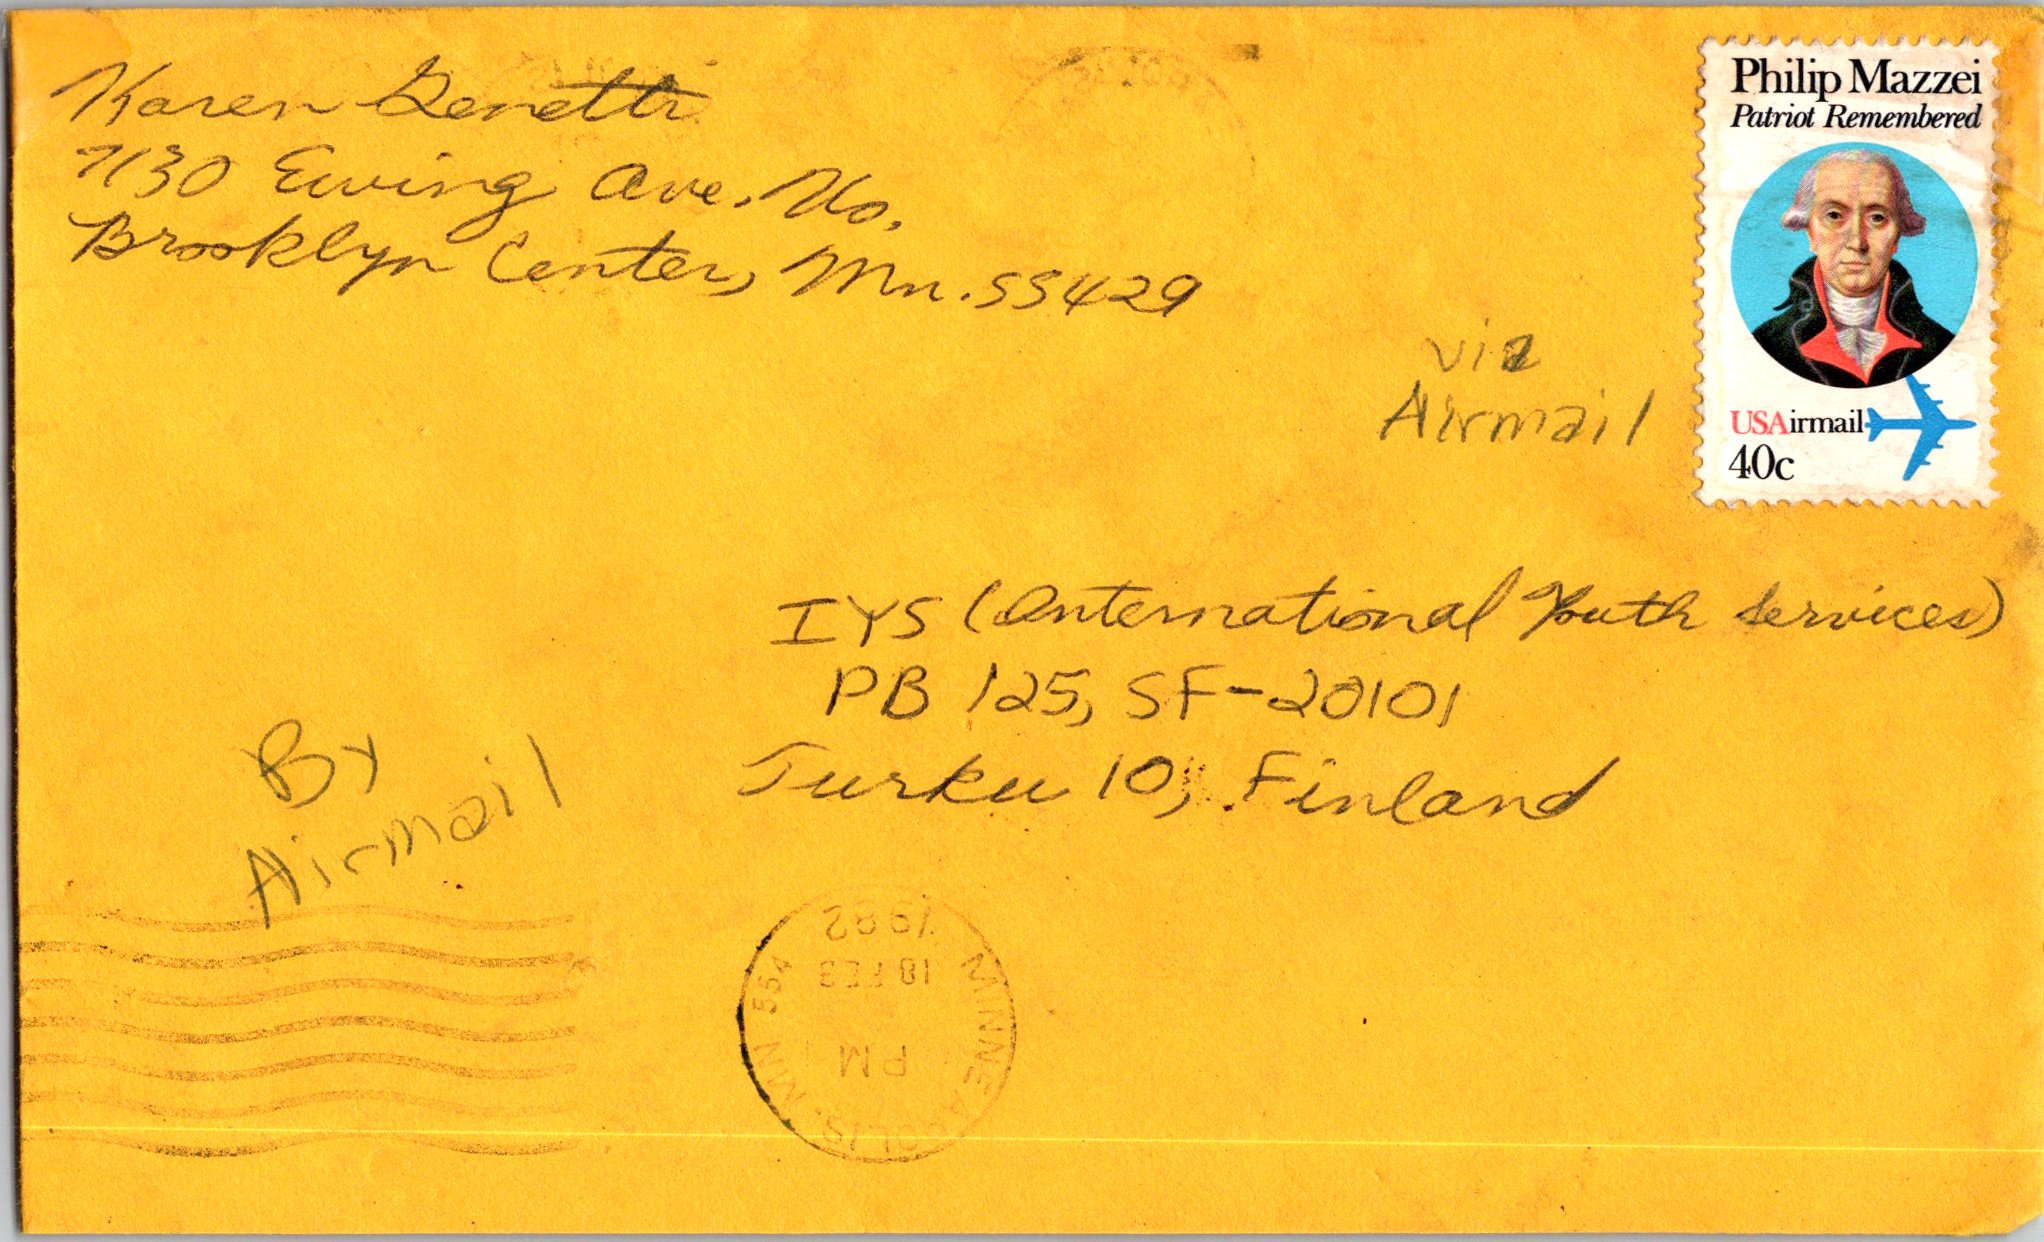 Karen Genetti
7130 Ewing Ave. No.
Brooklyn Center, Mn. 55429
Philip Mazzei
Patriot Remembered
USAirmail
40c
via
Airmail
IYS (International Youth Services)
PB 125, SF-20101
Turku 10, Finland
By
Airmail
MINNEAPOLIS, MN 554
PM
18 FEB
1982